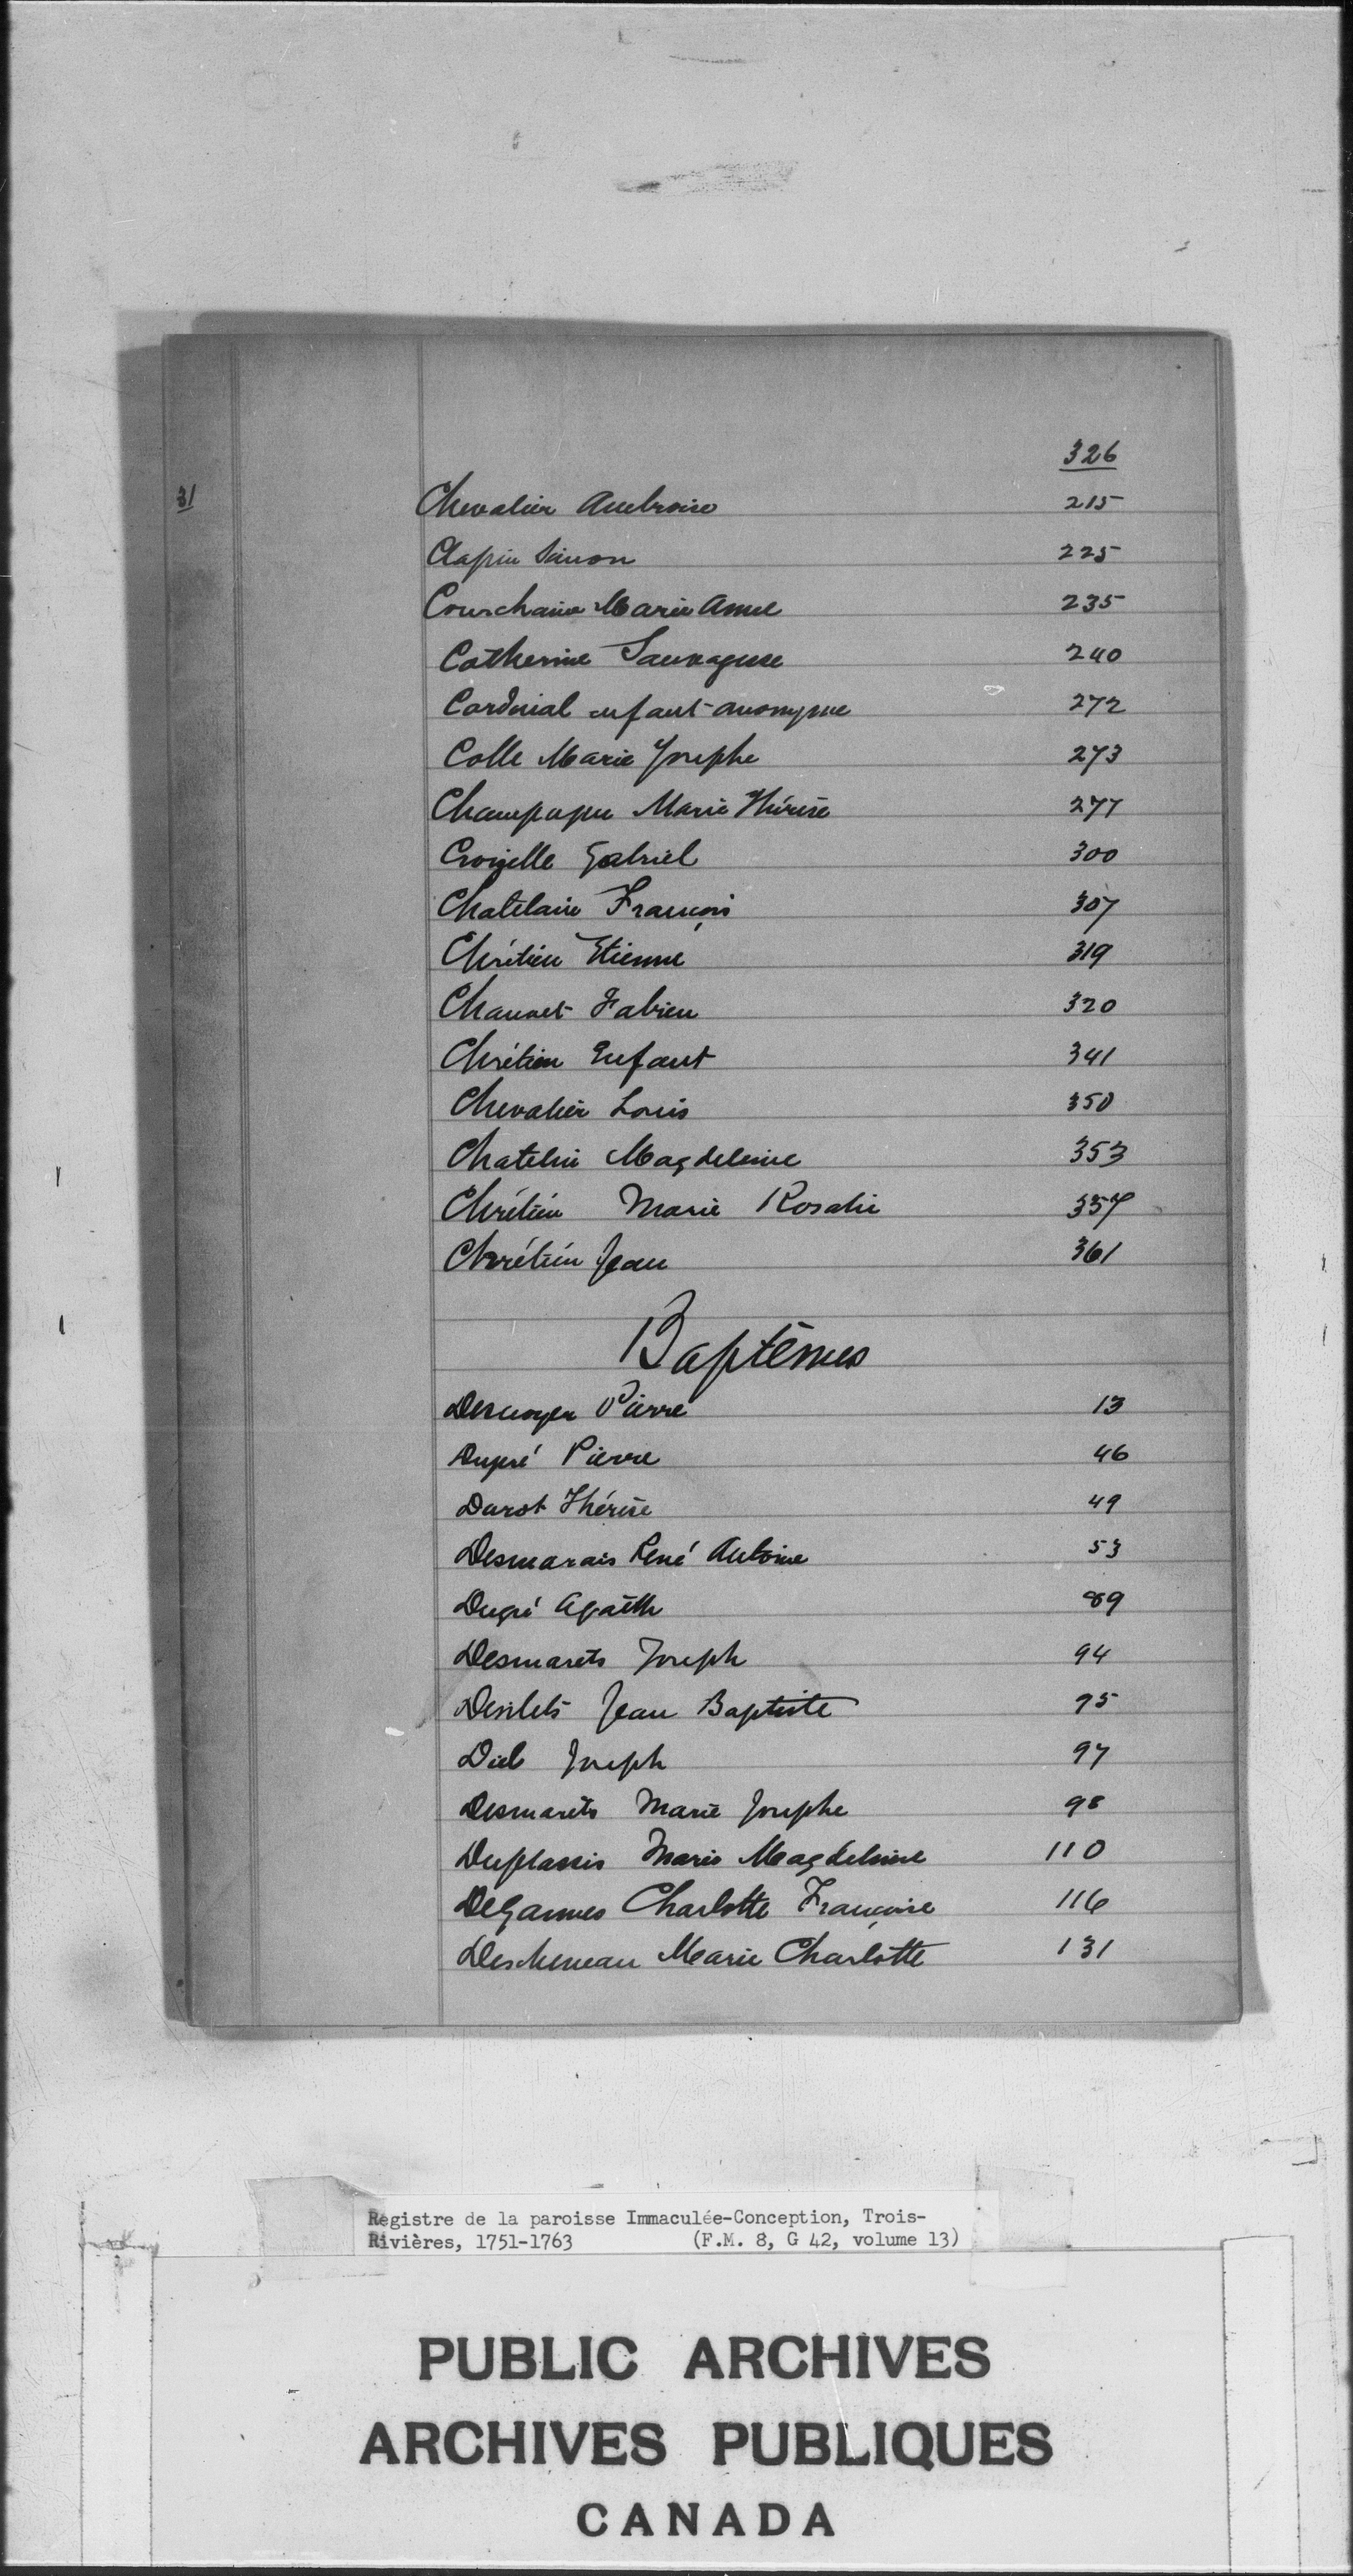 326
31
Chevalier Ambroise 215
Clapin Simon 225
Courchaine Marie Anne 235
Catherine Sauvagesse 240
Cardinal enfant anonyme 272
Colle Marie Josephe 273
Marie Thérèse 277
Croizelle Gabriel 300
Chatelain François 307
Chrétien Etienne 319
Chauvet Fabien 320
Chrétien Enfant 341
Chevalier Louis 350
Chatelin Magdeleine 353
Chrétien Marie Rosalie 357
Chrétien Jean 361
Baptêmes
Desnoyer Pierre 13
Dupré Pierre 46
Durot Thérèse 49
Desmarais René Antoine 53
Dugré Agathe 89
Desmarets Joseph 94
Desilets Jean Baptiste 95
Diel Joseph 97
Desmarêts Marie Josephe 98
Duplassis Marie Magdeleine 110
DeGannes Charlotte Françoise 116
Descheneau Marie Charlotte 131
Registre de la paroisse Immaculée-Conception, Trois-
Rivières, 1751-1763 (F.M. 8, G 42, volume 13)
PUBLIC ARCHIVES
ARCHIVES PUBLIQUES
CANADA